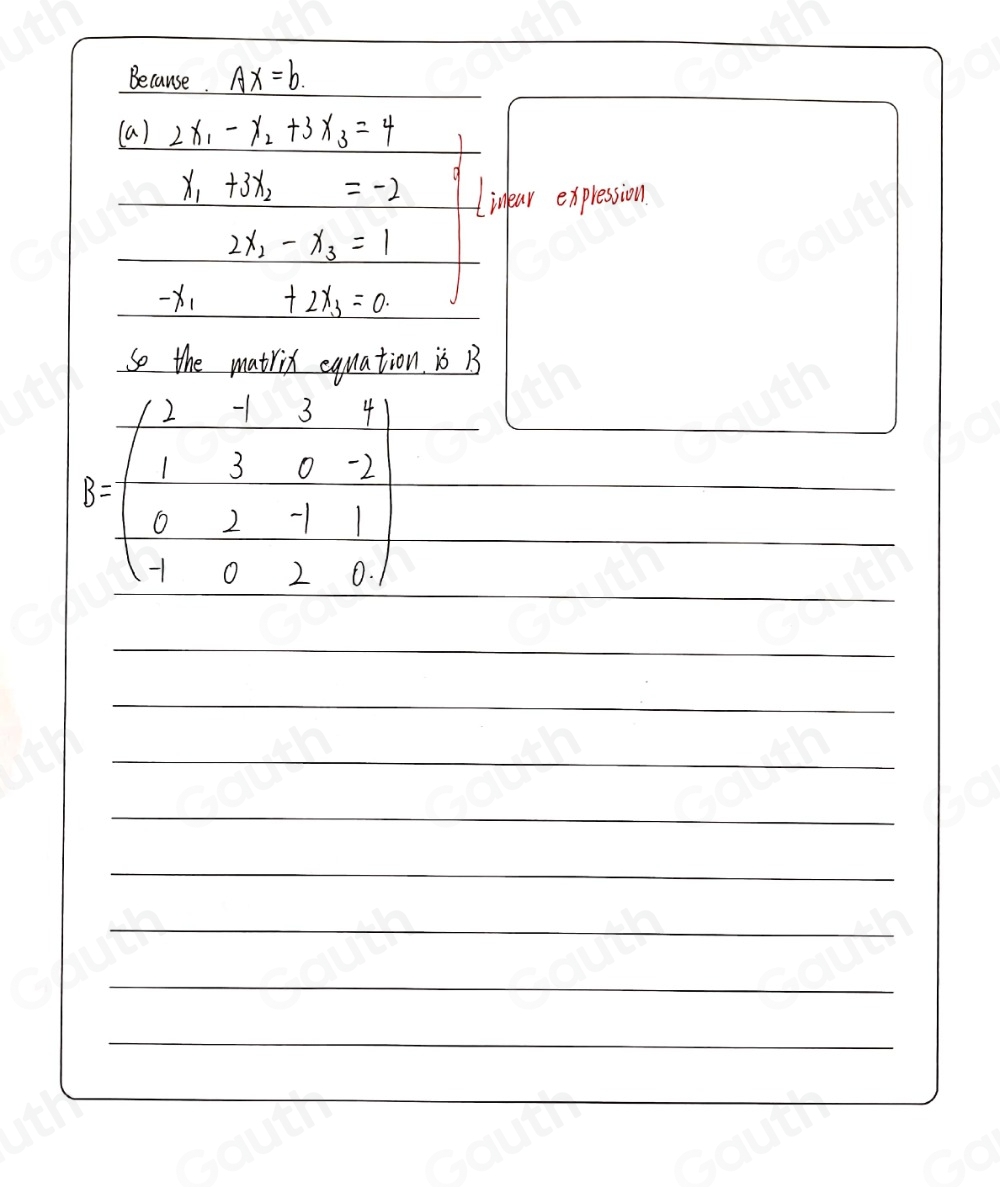 Because. AX = b.
(a) 2x₁ - x₂ + 3x₃ = 4
x₁ + 3x₂ = -2
2x₂ - x₃ = 1
-x₁ + 2x₃ = 0.
Linear expression.
So the matrix equation. is B
B = ( 2 -1 3 4
1 3 0 -2
0 2 -1 1
-1 0 2 0. )
Gauth